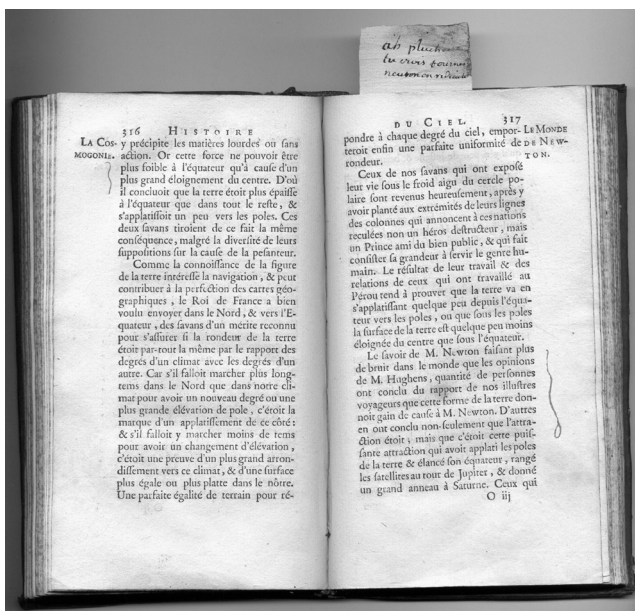 ab pluche
tu crois tourner
neuton en ridicule
316 HISTOIRE
LA COS-
MOGONIE.
y précipite les matières lourdes ou sans
action. Or cette force ne pouvoit être
plus foible à l'équateur qu'à cause d'un
plus grand éloignement du centre. D'où
il concluoit que la terre étoit plus épaisse
à l'équateur que dans tout le reste, &
s'applatissoit un peu vers les poles. Ces
deux savans tiroient de ce fait la même
conséquence, malgré la diversité de leurs
suppositions sur la cause de la pesanteur.
Comme la connoissance de la figure
de la terre intéresse la navigation, & peut
contribuer à la perfection des cartes géo-
graphiques, le Roi de France a bien
voulu envoyer dans le Nord, & vers l'E-
quateur, des savans d'un mérite reconnu
pour s'assurer si la rondeur de la terre
étoit par-tout la même par le rapport des
degrés d'un climat avec les degrés d'un
autre. Car s'il falloit marcher plus long-
tems dans le Nord que dans notre cli-
mat pour avoir un nouveau degré ou une
plus grande élévation de pole, c'étoit la
marque d'un applatissement de ce côté:
& s'il falloit y marcher moins de tems
pour avoir un changement d'élévation,
c'étoit une preuve d'un plus grand arron-
dissement vers ce climat, & d'une surface
plus égale ou plus platte dans le nôtre.
Une parfaite égalité de terrain pour ré-
DU CIEL. 317
LE MONDE
DE NEW-
TON.
pondre à chaque degré du ciel, empor-
teroit enfin une parfaite uniformité de
rondeur.
Ceux de nos savans qui ont exposé
leur vie sous le froid aigu du cercle po-
laire sont revenus heureusement, après y
avoir planté aux extrémités de leurs lignes
des colonnes qui annoncent à ces nations
reculées non un héros destructeur, mais
un Prince ami du bien public, & qui fait
consister sa grandeur à servir le genre hu-
main. Le résultat de leur travail & des
relations de ceux qui ont travaillé au
Pérou tend à prouver que la terre va en
s'applatissant quelque peu depuis l'équa-
teur vers les poles, ou que sous les poles
la surface de la terre est quelque peu moins
éloignée du centre que sous l'équateur.
Le savoir de M. Newton faisant plus
de bruit dans le monde que les opinions
de M. Hughens, quantité de personnes
ont conclu du rapport de nos illustres
voyageurs que cette forme de la terre don-
noit gain de cause à M. Newton. D'autres
en ont conclu non-seulement que l'attra-
ction étoit; mais que c'étoit cette puis-
sante attraction qui avoit applati les poles
de la terre & élancé son équateur, rangé
les satellites au tour de Jupiter, & donné
un grand anneau à Saturne. Ceux qui
O iij